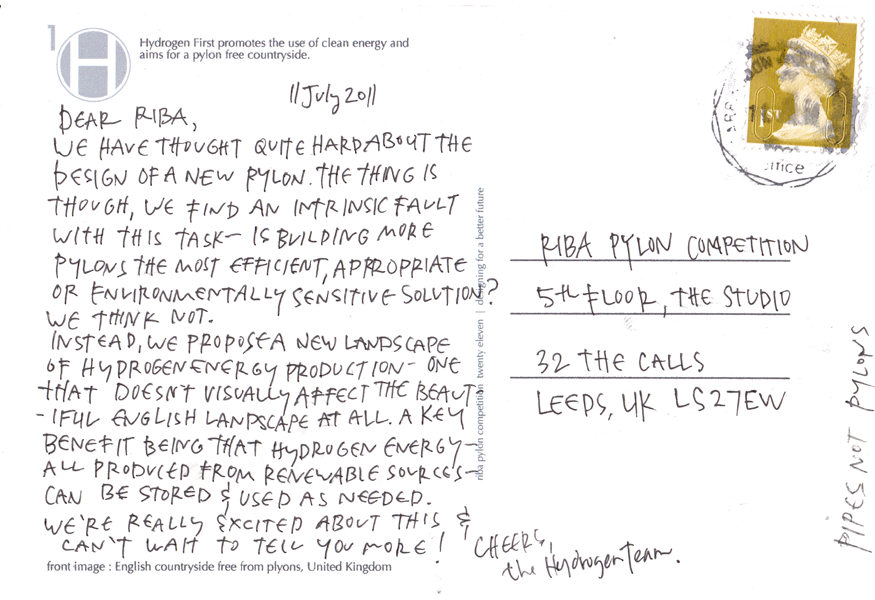 1
H
Hydrogen First promotes the use of clean energy and
aims for a pylon free countryside.
11 July 2011
DEAR RIBA,
WE HAVE THOUGHT QUITE HARD ABOUT THE
DESIGN OF A NEW PYLON. THE THING IS
THOUGH, WE FIND AN INTRINSIC FAULT
WITH THIS TASK — IS BUILDING MORE
PYLONS THE MOST EFFICIENT, APPROPRIATE
OR ENVIRONMENTALLY SENSITIVE SOLUTION?
WE THINK NOT.
INSTEAD, WE PROPOSE A NEW LANDSCAPE
OF HYDROGEN ENERGY PRODUCTION — ONE
THAT DOESN'T VISUALLY AFFECT THE BEAUT
-IFUL ENGLISH LANDSCAPE AT ALL. A KEY
BENEFIT BEING THAT HYDROGEN ENERGY —
ALL PRODUCED FROM RENEWABLE SOURCES —
CAN BE STORED & USED AS NEEDED.
WE'RE REALLY EXCITED ABOUT THIS &
CAN'T WAIT TO TELL YOU MORE!
CHEERS,
the Hydrogen Team.
front image : English countryside free from plyons, United Kingdom
riba pylon competition twenty eleven | designing for a better future
1ST
ffice
RIBA PYLON COMPETITION
5th FLOOR, THE STUDIO
32 THE CALLS
LEEDS, UK LS27EW
PIPES NOT PYLONS